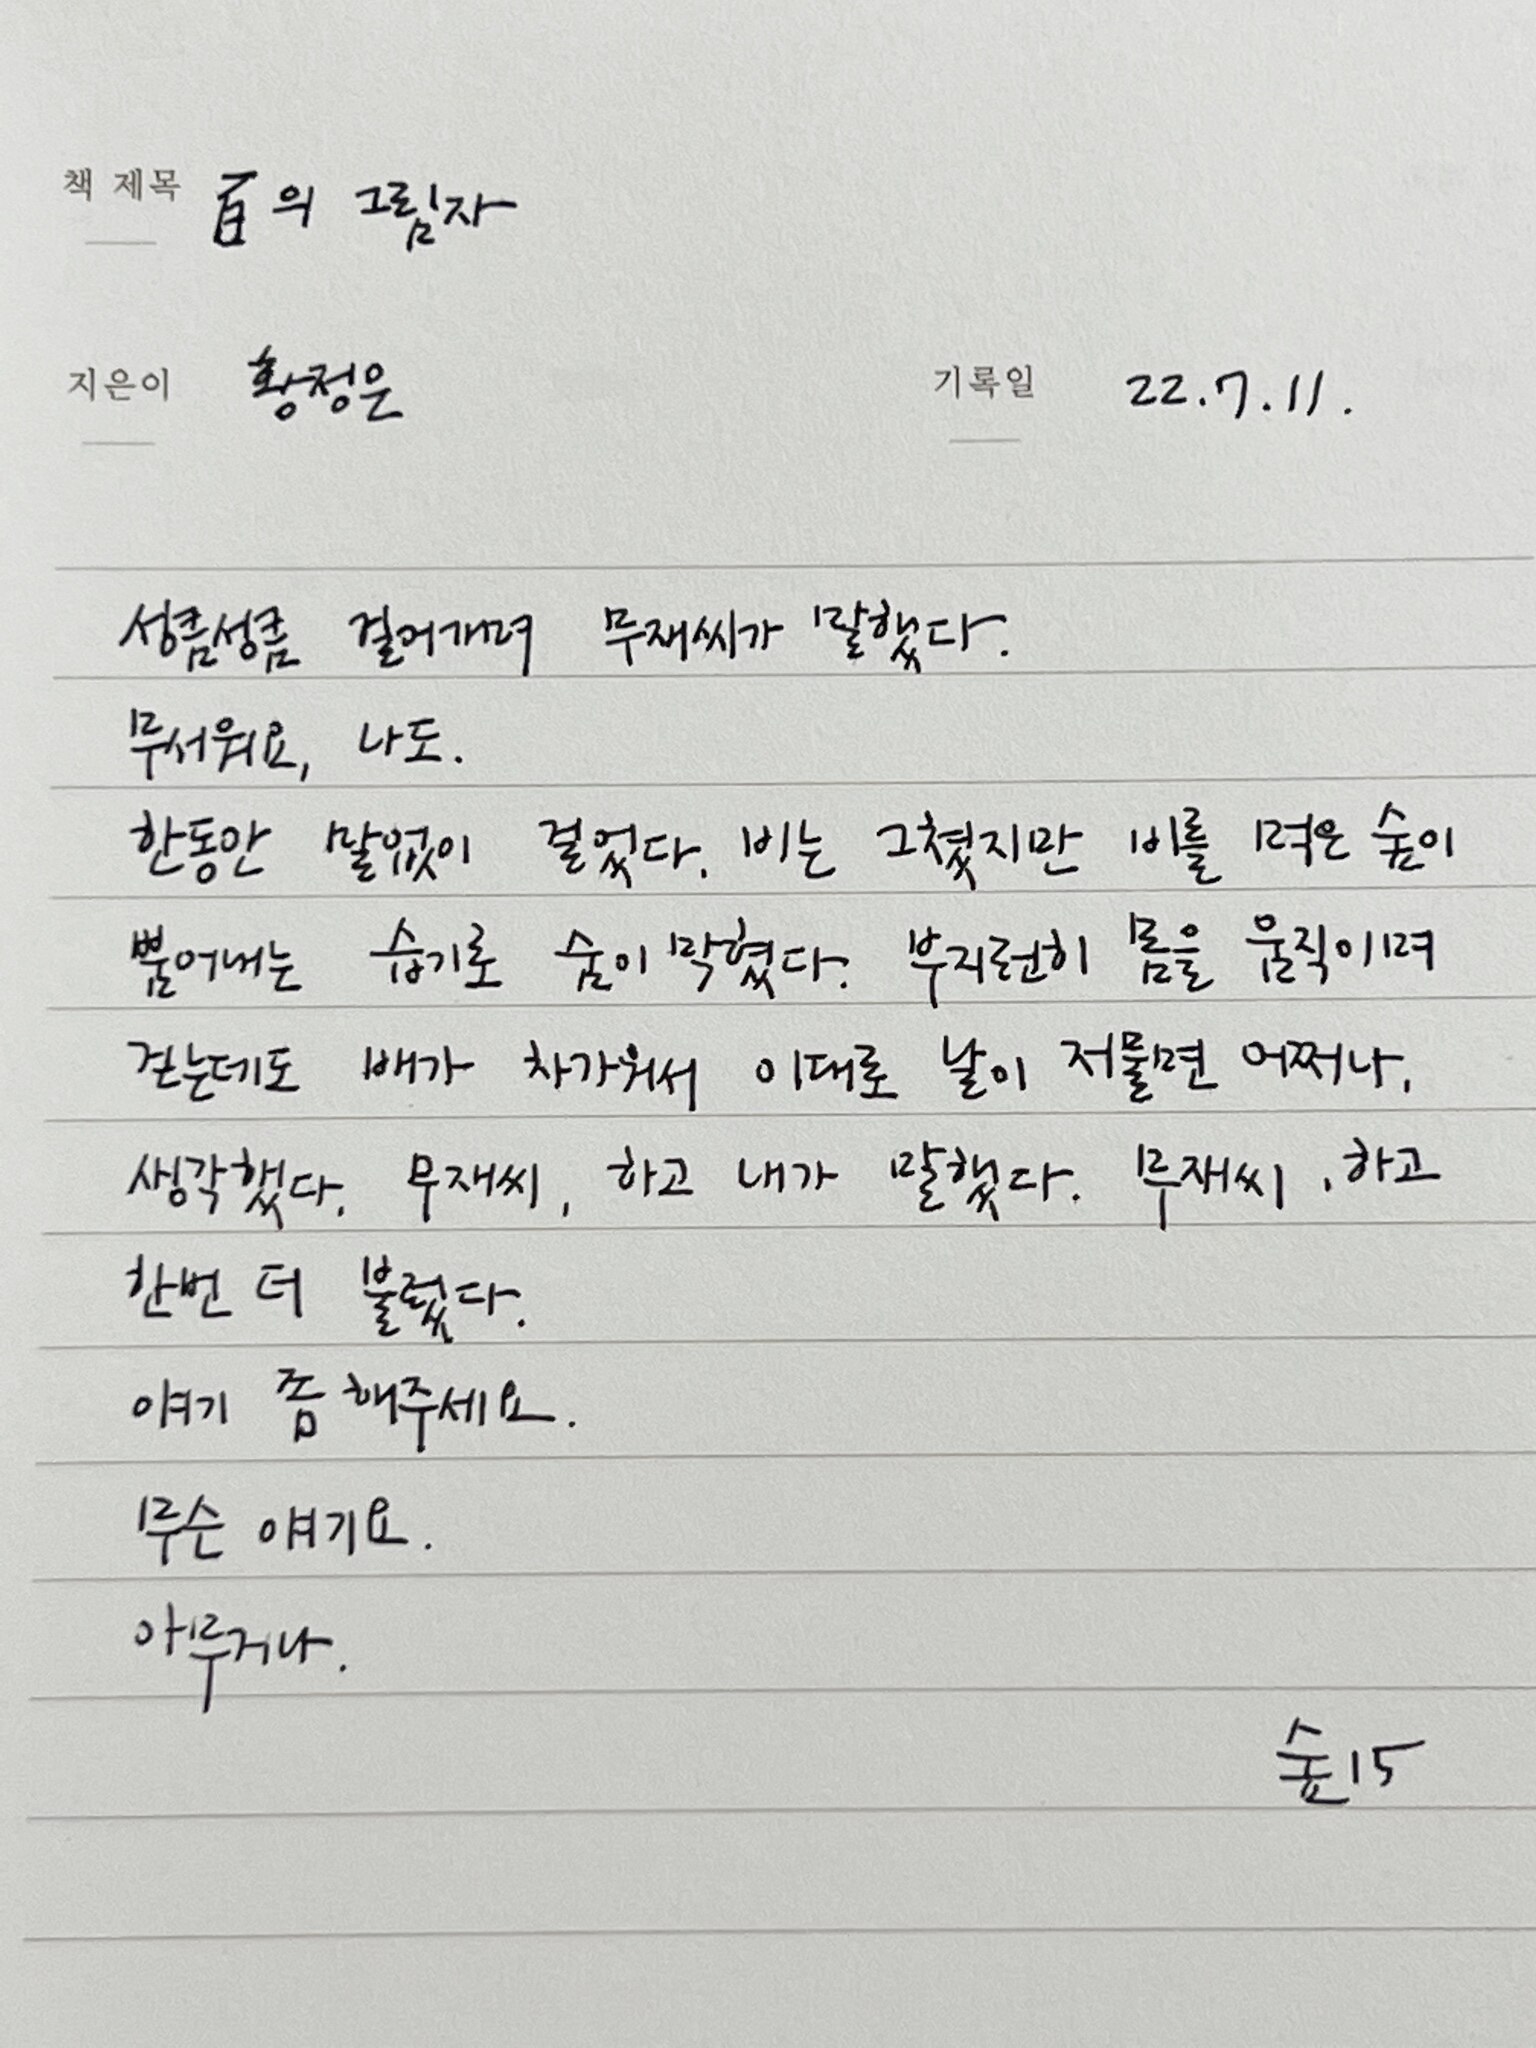 책 제목 百의 그림자
지은이 황정은 기록일 22.7.11.
성큼성큼 걸어가며 무재씨가 말했다.
무서워요, 나도.
한동안 말없이 걸었다. 비는 그쳤지만 비를 먹은 숲이
뿜어내는 습기로 숨이 막혔다. 부지런히 몸을 움직이며
걷는데도 배가 차가워서 이대로 날이 저물면 어쩌나,
생각했다. 무재씨, 하고 내가 말했다. 무재씨, 하고
한번 더 불렀다.
얘기 좀 해주세요.
무슨 얘기요.
아무거나.
숲15